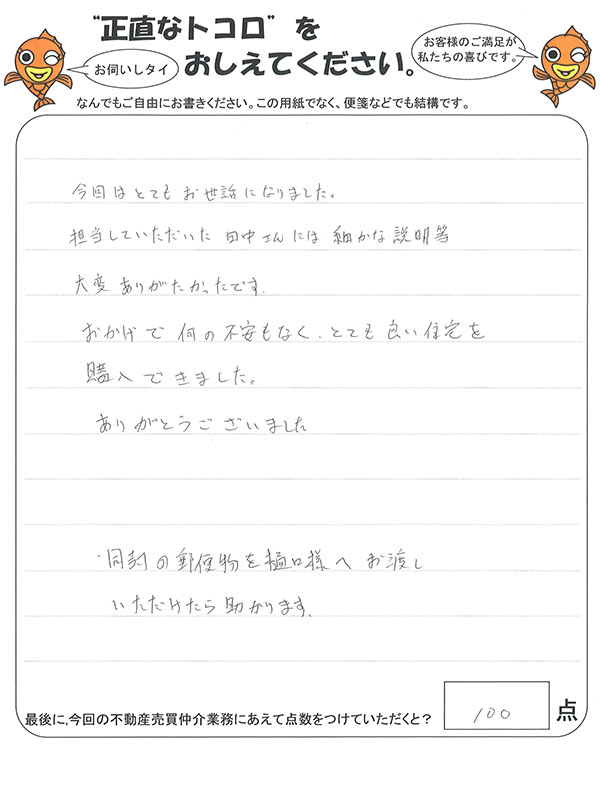 "正直なトコロ"を
おしえてください。
お伺いしタイ
お客様のご満足が
私たちの喜びです。
なんでもご自由にお書きください。この用紙でなく、便箋などでも結構です。
今回はとてもお世話になりました。
担当していただいた 田中さんには 細かな説明等
大変ありがたかったです.
おかげで 何の不安もなく、とても良い住宅を
購入できました。
ありがとうございました
同封の郵便物を樋口様へ お渡し
いただけたら助かります。
最後に,今回の不動産売買仲介業務にあえて点数をつけていただくと?
100 点